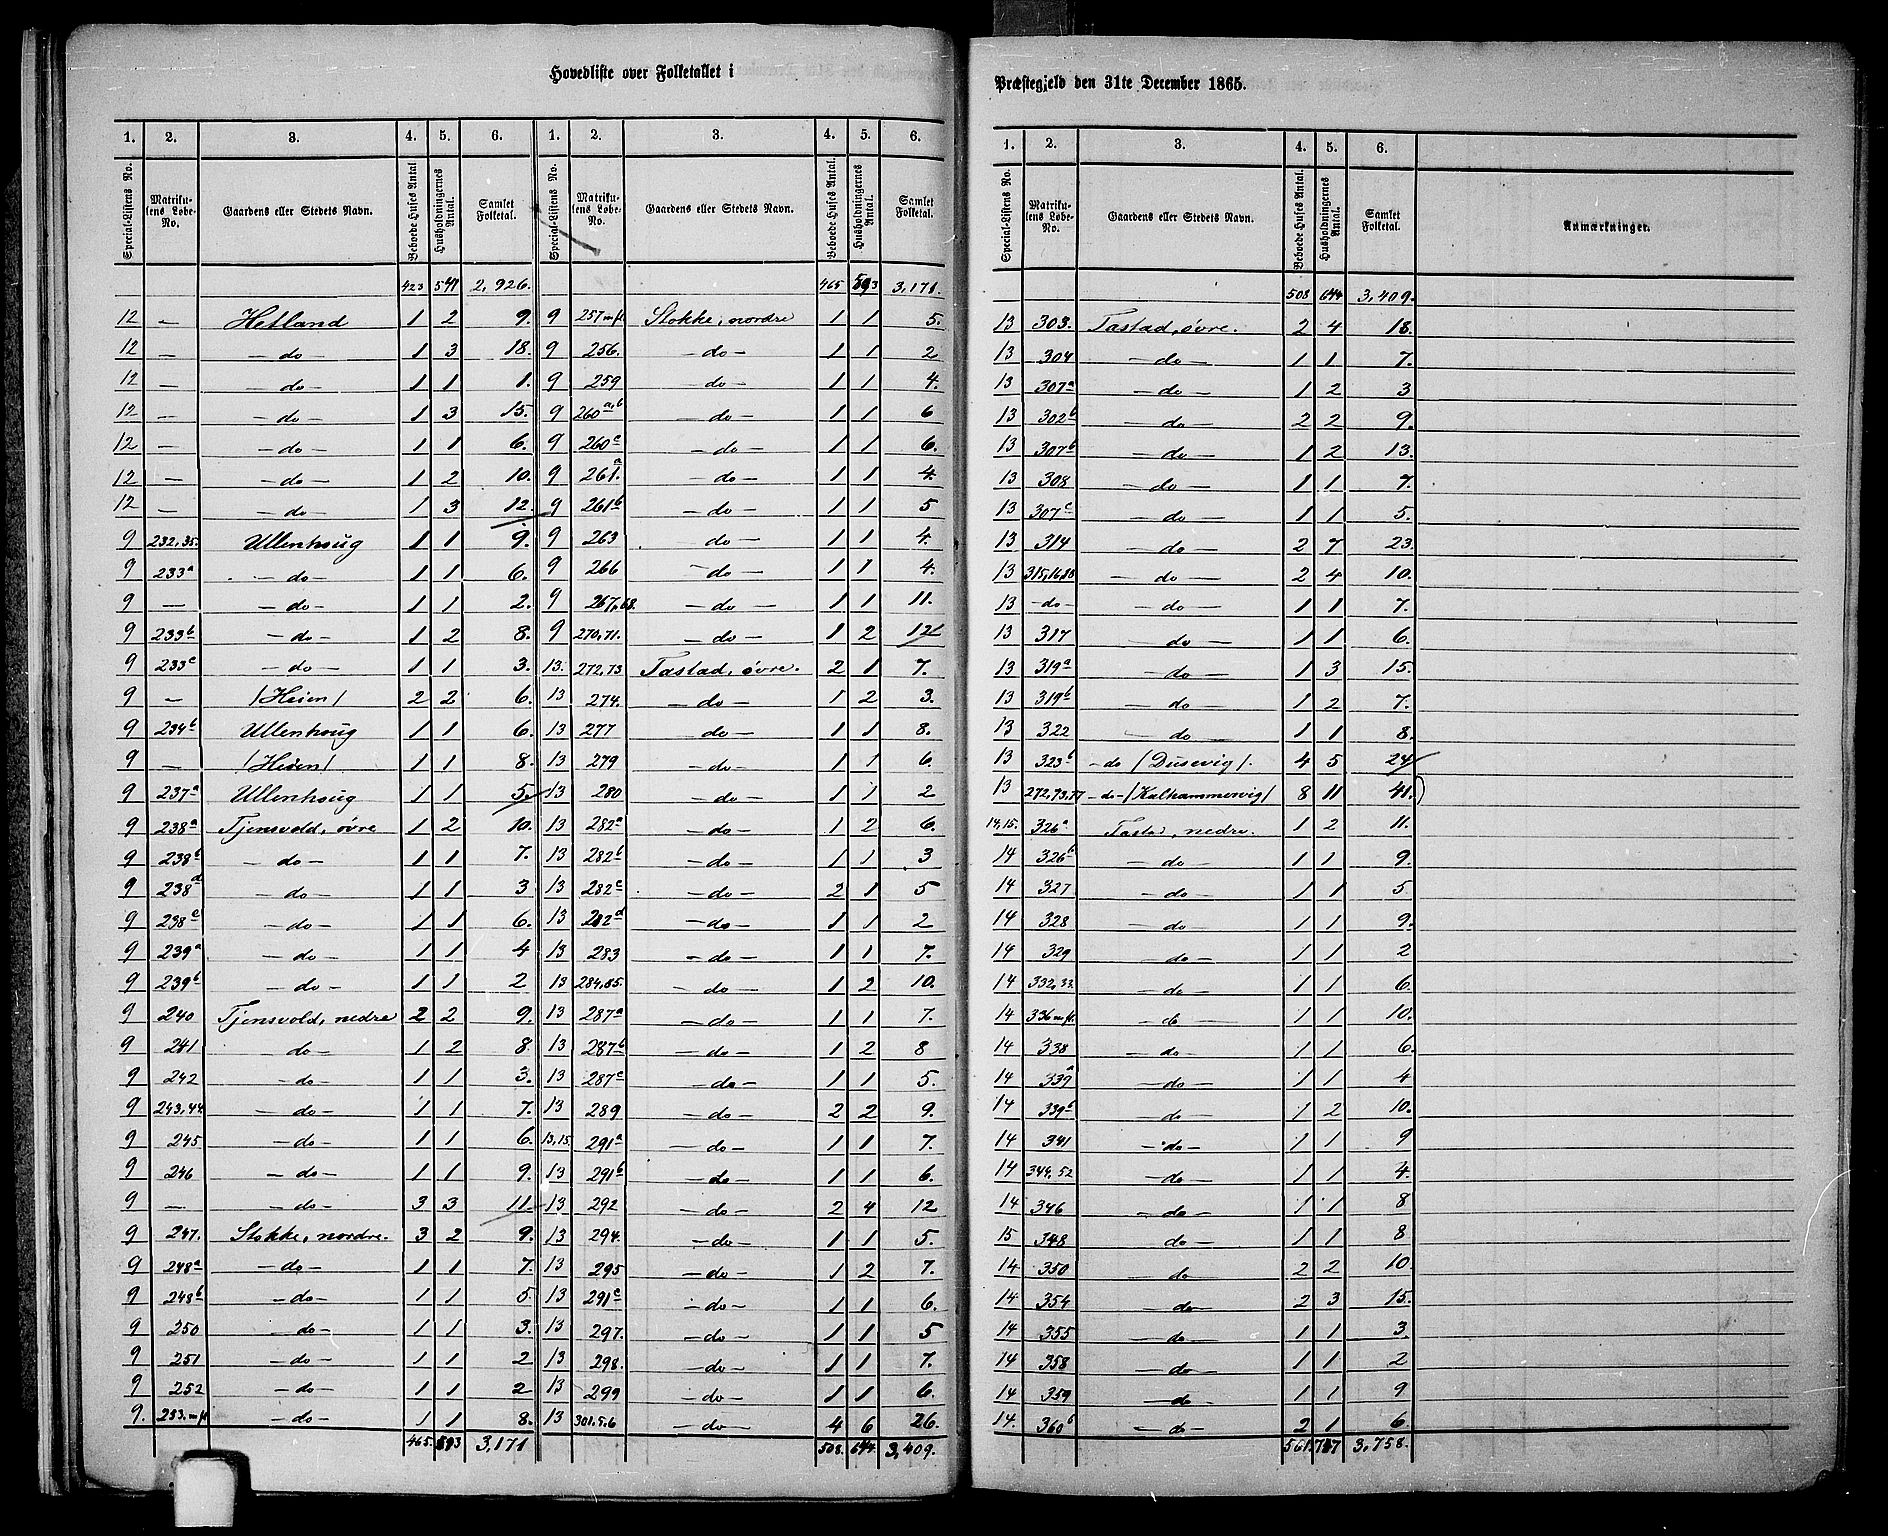 Hovedliste over Folketallet i
1. 2. 3. 4. 5. 6. 1. 2. 3. 4. 5. 6.
Special-Listens No. Matrikulens Løbe-No. Gaardens eller Stedets Navn. Beboede Huses Antal. Husholdningernes Antal. Samlet Folketal. Special-Listens No. Matrikulens Løbe-No. Gaardens eller Stedets Navn. Beboede Huses Antal. Husholdningernes Antal. Samlet Folketal.
423 541 2,926. 465 593 3,171.
12 — Hetland 1 2 9. 9 257 m fl. Stokke, nordre 1 1 5.
12 — — do — 1 3 18. 9 256. — do — 1 1 2
12 — — do — 1 1 1. 9 259 — do — 1 1 4.
12 — — do — 1 3 15. 9 260 a,b — do — 1 1 6
12 — — do — 1 1 6. 9 260 c — do — 1 1 6.
12 — — do — 1 2 10. 9 261 a — do — 1 1 4.
12 — — do — 1 3 12. 9 261 b — do — 1 1 5
9 232,35. Ullenhoug 1 1 9. 9 263 — do — 1 1 4.
9 233 a — do — 1 1 6. 9 266 — do — 1 1 4.
9 — — do — 1 1 2. 9 267,68. — do — 1 1 11.
9 233 b — do — 1 2 8. 9 270,71. — do — 1 2 12
9 233 c — do — 1 1 3. 13. 272,73 Tastad, øvre. 2 1 7.
9 — /Heien/ 2 2 6. 13 274. — do — 1 2 3.
9 234 b Ullenhoug 1 1 6. 13 277 — do — 1 1 8.
9 — /Heien/ 1 1 8. 13 279 — do — 1 1 6.
9 237 a Ullenhoug 1 1 5. 13 280 — do — 1 1 2
9 238 a Tjensvold, øvre 1 2 10. 13 282 a — do — 1 2 6.
9 238 b — do — 1 1 7. 13 282 b — do — 1 1 3
9 238 d — do — 1 1 3 13 282 c — do — 2 1 5
9 238 e — do — 1 1 6. 13 282 d — do — 1 1 2
9 239 a — do — 1 1 4 13 283 — do — 1 1 7.
9 239 b — do — 1 1 2 13 284,85. — do — 1 2 10.
9 240 Tjensvold, nedre 2 2 9. 13 287 a — do — 1 1 7.
9 241 — do — 1 2 8. 13 287 b — do — 1 2 8
9 242 — do — 1 1 3. 13 287 c — do — 1 1 5.
9 243,44. — do — 1 1 7. 13 289 — do — 2 2 9.
9 245 — do — 1 1 6. 13,15. 291 a — do — 1 1 7.
9 246 — do — 1 1 9. 13 291 b — do — 1 1 6.
9 — — do — 3 3 11. 13 292 — do — 2 4 12
9 247. Stokke, nordre. 3 2 9. 13 294. — do — 1 1 5.
9 248 a — do — 1 1 7. 13 295 — do — 1 2 7.
9 248 b — do — 1 1 5. 13 291 c — do — 1 1 6.
9 250 — do — 1 1 3. 13 297. — do — 1 1 5
9 251 — do — 1 1 2 13 298. — do — 1 1 7.
9 252 — do — 1 1 2 13 299 — do — 1 1 6.
9. 253. m fl — do — 1 1 8. 13 301.5.6 — do — 4 6 26.
465. 593 3,171 508. 644. 3,409.
Præstegjeld den 31te December 1865.
1. 2. 3. 4. 5. 6.
Special-Listens No. Matrikulens Løbe-No. Gaardens eller Stedets Navn. Beboede Huses Antal. Husholdningernes Antal. Samlet Folketal. Anmærkninger.
508 644 3,409.
13 303. Tastad, øvre. 2 4 18.
13 304 — do — 1 1 7.
13 307 a — do — 1 2 3
13 302 b — do — 2 2 9.
13 307 b — do — 1 2 13.
13 308 — do — 1 1 7.
13 307 c — do — 1 1 5.
13 314 — do — 2 7 23.
13 315,16,18 — do — 2 4 10.
13 — do — — do — 1 1 7.
13 317 — do — 1 1 6.
13 319 a — do — 1 3 15.
13 319 b — do — 1 2 7.
13 322 — do — 1 1 8.
13 323 b — do /Dusevig/. 4 5 24
13 272,73,77 — do — /Kalhammervig/ 8 11 41.
14,15. 326 a Tastad, nedre. 1 2 11.
14 326 b — do — 1 1 9.
14 327 — do — 1 1 5.
14 328 — do — 1 1 9.
14 329 — do — 1 1 2
14 332,33. — do — 1 1 6.
14 336 m fl. — do — 1 1 10.
14 338 — do — 1 1 6.
14 339 a — do — 1 1 4
14 339 b — do — 1 2 10.
14 341 — do — 1 1 9
14 344.52 — do — 1 1 4.
14 346 — do — 1 1 8
15 348 do — 1 1 8
14 350 — do 2 2 10.
14 354 — do — 2 3 15.
14 355 — do — 1 1 3.
14 358 — do — 1 1 2
14 359 — do — 1 1 9
14. 360 b — do — 2 1 6.
561. 727 3,758.